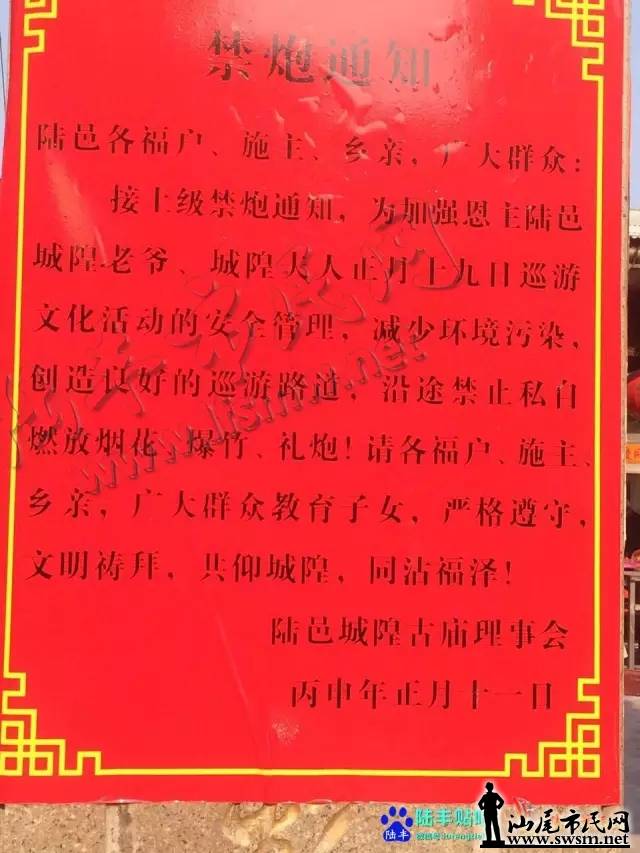 禁炮通知
陆邑各福户、施主、乡亲，广大群众：
接上级禁炮通知，为加强恩主陆邑
城隍老爷、城隍夫人正月十九日巡游
文化活动的安全管理，减少环境污染，
创造良好的巡游路道，沿途禁止私自
燃放烟花、爆竹、礼炮！请各福户、施主、
乡亲，广大群众教育子女，严格遵守，
文明祷拜，共仰城隍，同沾福泽！
陆邑城隍古庙理事会
丙申年正月十一日
陆丰
陆丰贴吧
汕尾市民网
www.swsm.net